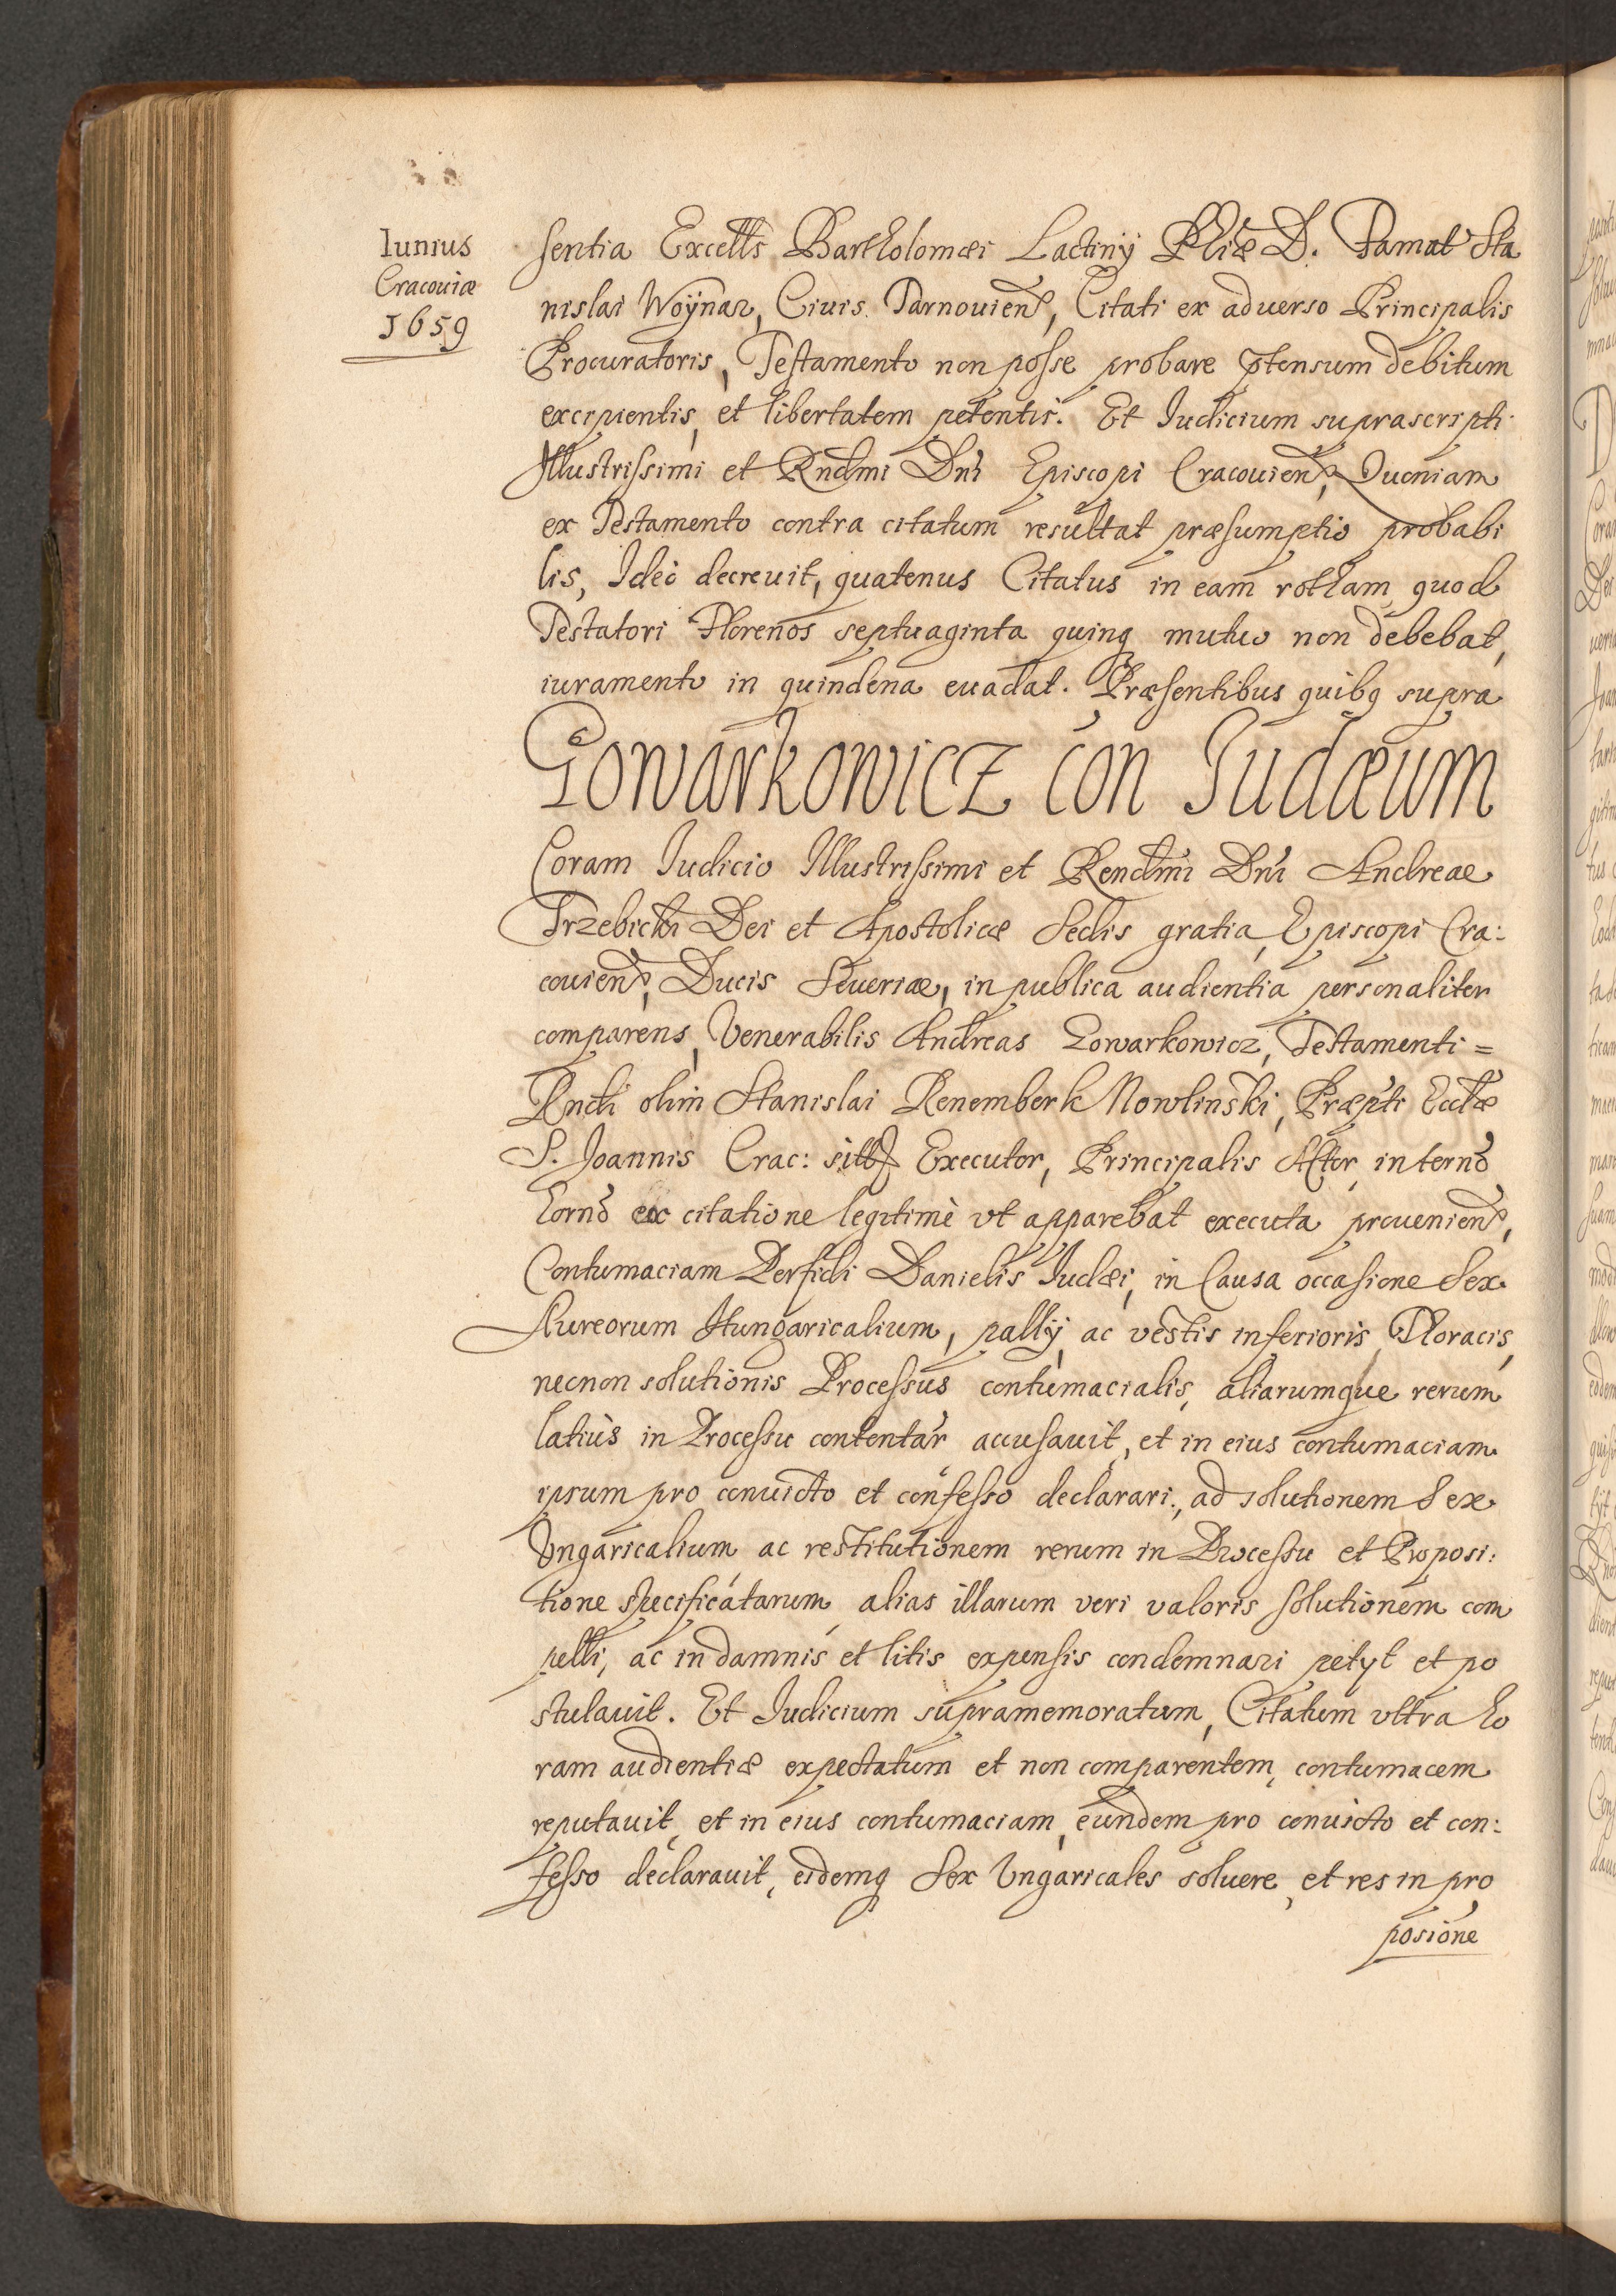 Iunius
Cracouiæ
1659
sentia Excellis Bartholomæi Lactinÿ D. Famat Sta
nislai Woÿnar, Ciuis Tarnouien, Citati ex aduerso Principalis
Procuratoris, Testamento non posse probare ptensum debitum
excipientis, et libertatem petentis. Et Iudicium suprascripti
Illustrissimi et Rndmi Dni Episcopi Cracouien, Quoniam
ex Testamento contra citatum resultat præsumptio probabi
lis, Ideò decreuit, quatenus Citatus in eam rotham quod
Testatori Florenos septuaginta quinq mutuo non debebat,
iuramento in quindena euadat. Præsentibus quibq supra
Gowarkowicz con Iudæum
Coram Iudicio Illustrissimi et Rendmi Dni Andreae
Trzebicki Dei et Apostolicæ Sedis gratia Episcopi Cra:
couien, Ducis Seueriæ, in publica audientia personaliter
comparens, Venerabilis Andreas Gowarkowicz, Testamenti=
Rndi olim Stanislai Renemberk Nowlinski, Præpti Ecclæ
S. Joannis Crac: Executor, Principalis Actor, in termo
horno ex citatione legitimè vt apparebat executa prouenien,
Contumaciam Perfidi Danielis Iudæi, in Causa occasione Sex
Aureorum Hungaricalium, pallÿ, ac vestis inferioris, Thoracis,
necnon solutionis Processus contumacialis, aliarumque rerum
latiùs in Processu contentar accusauit, et in eius contumaciam
ipsum pro conuicto et confesso declarari, ad solutionem Sex
Vngaricalium ac restitutionem rerum in Processu et Proposi:
tione specificatarum alias illarum veri valoris solutionem com
pelli, ac in damnis et litis expensis condemnari petyt et po
stulauit. Et Iudicium supramemoratum, Citatum vltra ho
ram audientiæ expectatum et non comparentem, contumacem
reputauit, et in eius contumaciam, eundem pro conuicto et con:
fesso declarauit, eidemq Sex Vngaricales soluere, et res in pro
posione